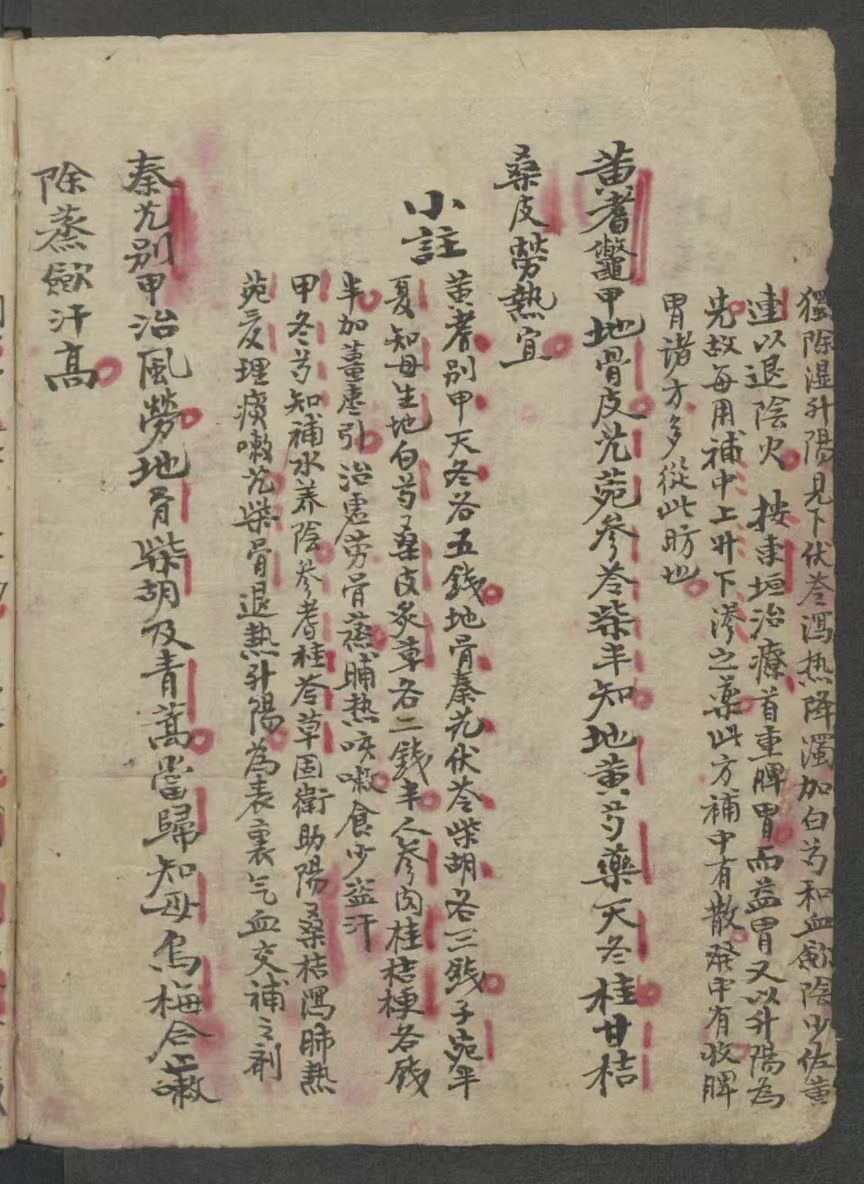 獨除湿升陽見下伏苓瀉热降濁加白芍和血歛陰少佐黄
連以退陰火按東垣治療首重脾胃而益胃又以升陽為
先故每用補中上升下滲之藥此方補中有散發中有收脾
胃諸方多從此昉也
黄耆鱉甲地骨皮艽菀參苓柴半知地黄芍藥天冬桂甘桔
桑皮勞熱宜
小註
黄耆別甲天冬各五錢地骨秦艽伏苓柴胡各三錢子菀半
夏知母生地白芍桑皮炙草各二錢半人參肉桂桔梗各錢
半加薑枣引治虚劳骨蒸晡热咳嗽食少盗汗
甲冬芍知補水养陰參耆桂苓草固衛助陽桑桔瀉肺热
菀夏理痰嗽艽柴骨退热升陽為表裏气血交補之剤
秦艽別甲治風勞地骨柴胡及青蒿當歸知母烏梅合嗽
除蒸歛汗高